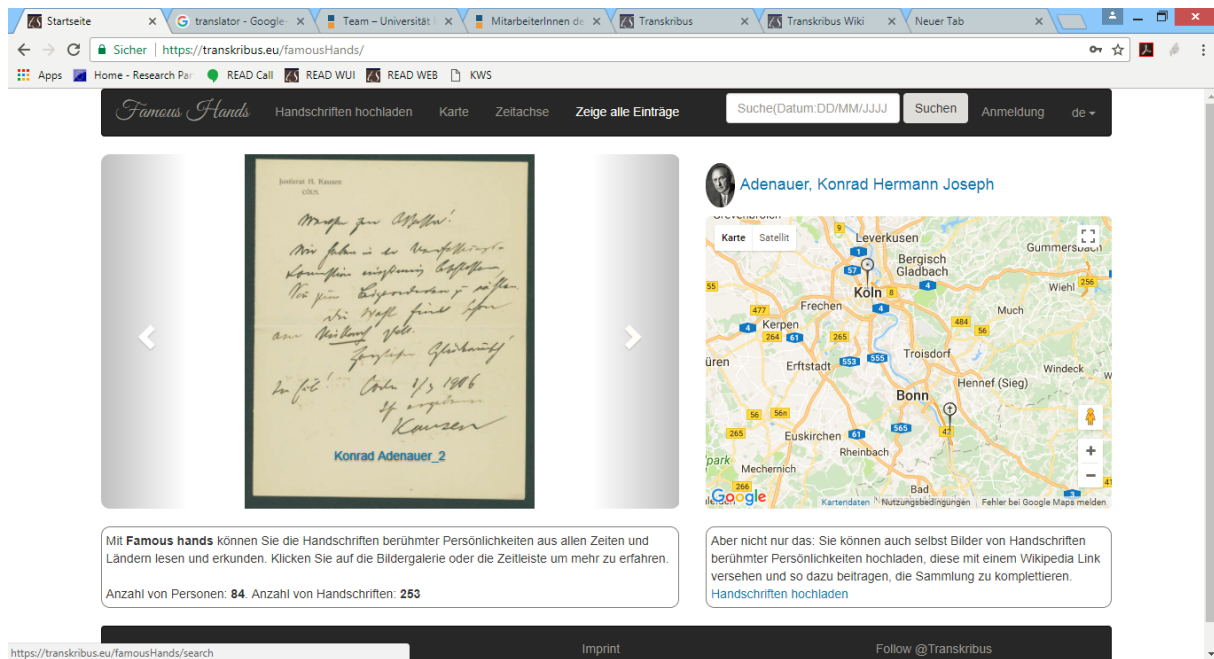 Startseite
G translator - Google-
Team – Universität
MitarbeiterInnen de
Transkribus
Transkribus Wiki
Neuer Tab
Sicher https://transkribus.eu/famousHands/
Apps Home - Research Par READ Call READ WUI READ WEB KWS
Famous Hands Handschriften hochladen Karte Zeitachse Zeige alle Einträge Suche(Datum:DD/MM/JJJJ Suchen Anmeldung de
Justizrat H. Kausen
CÖLN
Wir haben in der
die Wahl findet schon
am
Herzlichen Glückwunsch!
Cöln 1/3 1906
Kausen
Konrad Adenauer_2
Adenauer, Konrad Hermann Joseph
Karte Satellit
Grevenbroich
Leverkusen
Gummersbach
Bergisch
Gladbach
Köln
Wiehl
Frechen
Much
Kerpen
Troisdorf
Erftstadt
Windeck
Hennef (Sieg)
Bonn
Euskirchen
Rheinbach
Mechernich
Bad
Google Kartendaten Nutzungsbedingungen Fehler bei Google Maps melden
Mit Famous hands können Sie die Handschriften berühmter Persönlichkeiten aus allen Zeiten und
Ländern lesen und erkunden. Klicken Sie auf die Bildergalerie oder die Zeitleiste um mehr zu erfahren.
Anzahl von Personen: 84. Anzahl von Handschriften: 253
Aber nicht nur das: Sie können auch selbst Bilder von Handschriften
berühmter Persönlichkeiten hochladen, diese mit einem Wikipedia Link
versehen und so dazu beitragen, die Sammlung zu komplettieren.
Handschriften hochladen
Imprint
Follow @Transkribus
https://transkribus.eu/famousHands/search